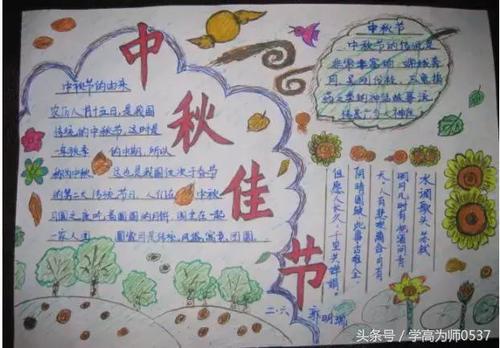 中秋佳节
中秋节的由来
农历八月十五日,是我国
传统的中秋节,这时是
一年秋季 的中期,所以
称为中秋 这也是我国仅次于春节
的第二大传统节日,人们在 中秋
一家人团 圆
中秋节
中秋节的传说是
非常丰富的,嫦娥奔
月,吴刚伐桂,玉兔捣
药之类的神话故事流
水调歌头 苏轼
明月几时有,把酒问青
天,人有悲欢离合,月有
阴晴圆缺,此事古难全,
但愿人长久,千里共婵娟。
二.六
头条号/学高为师0537